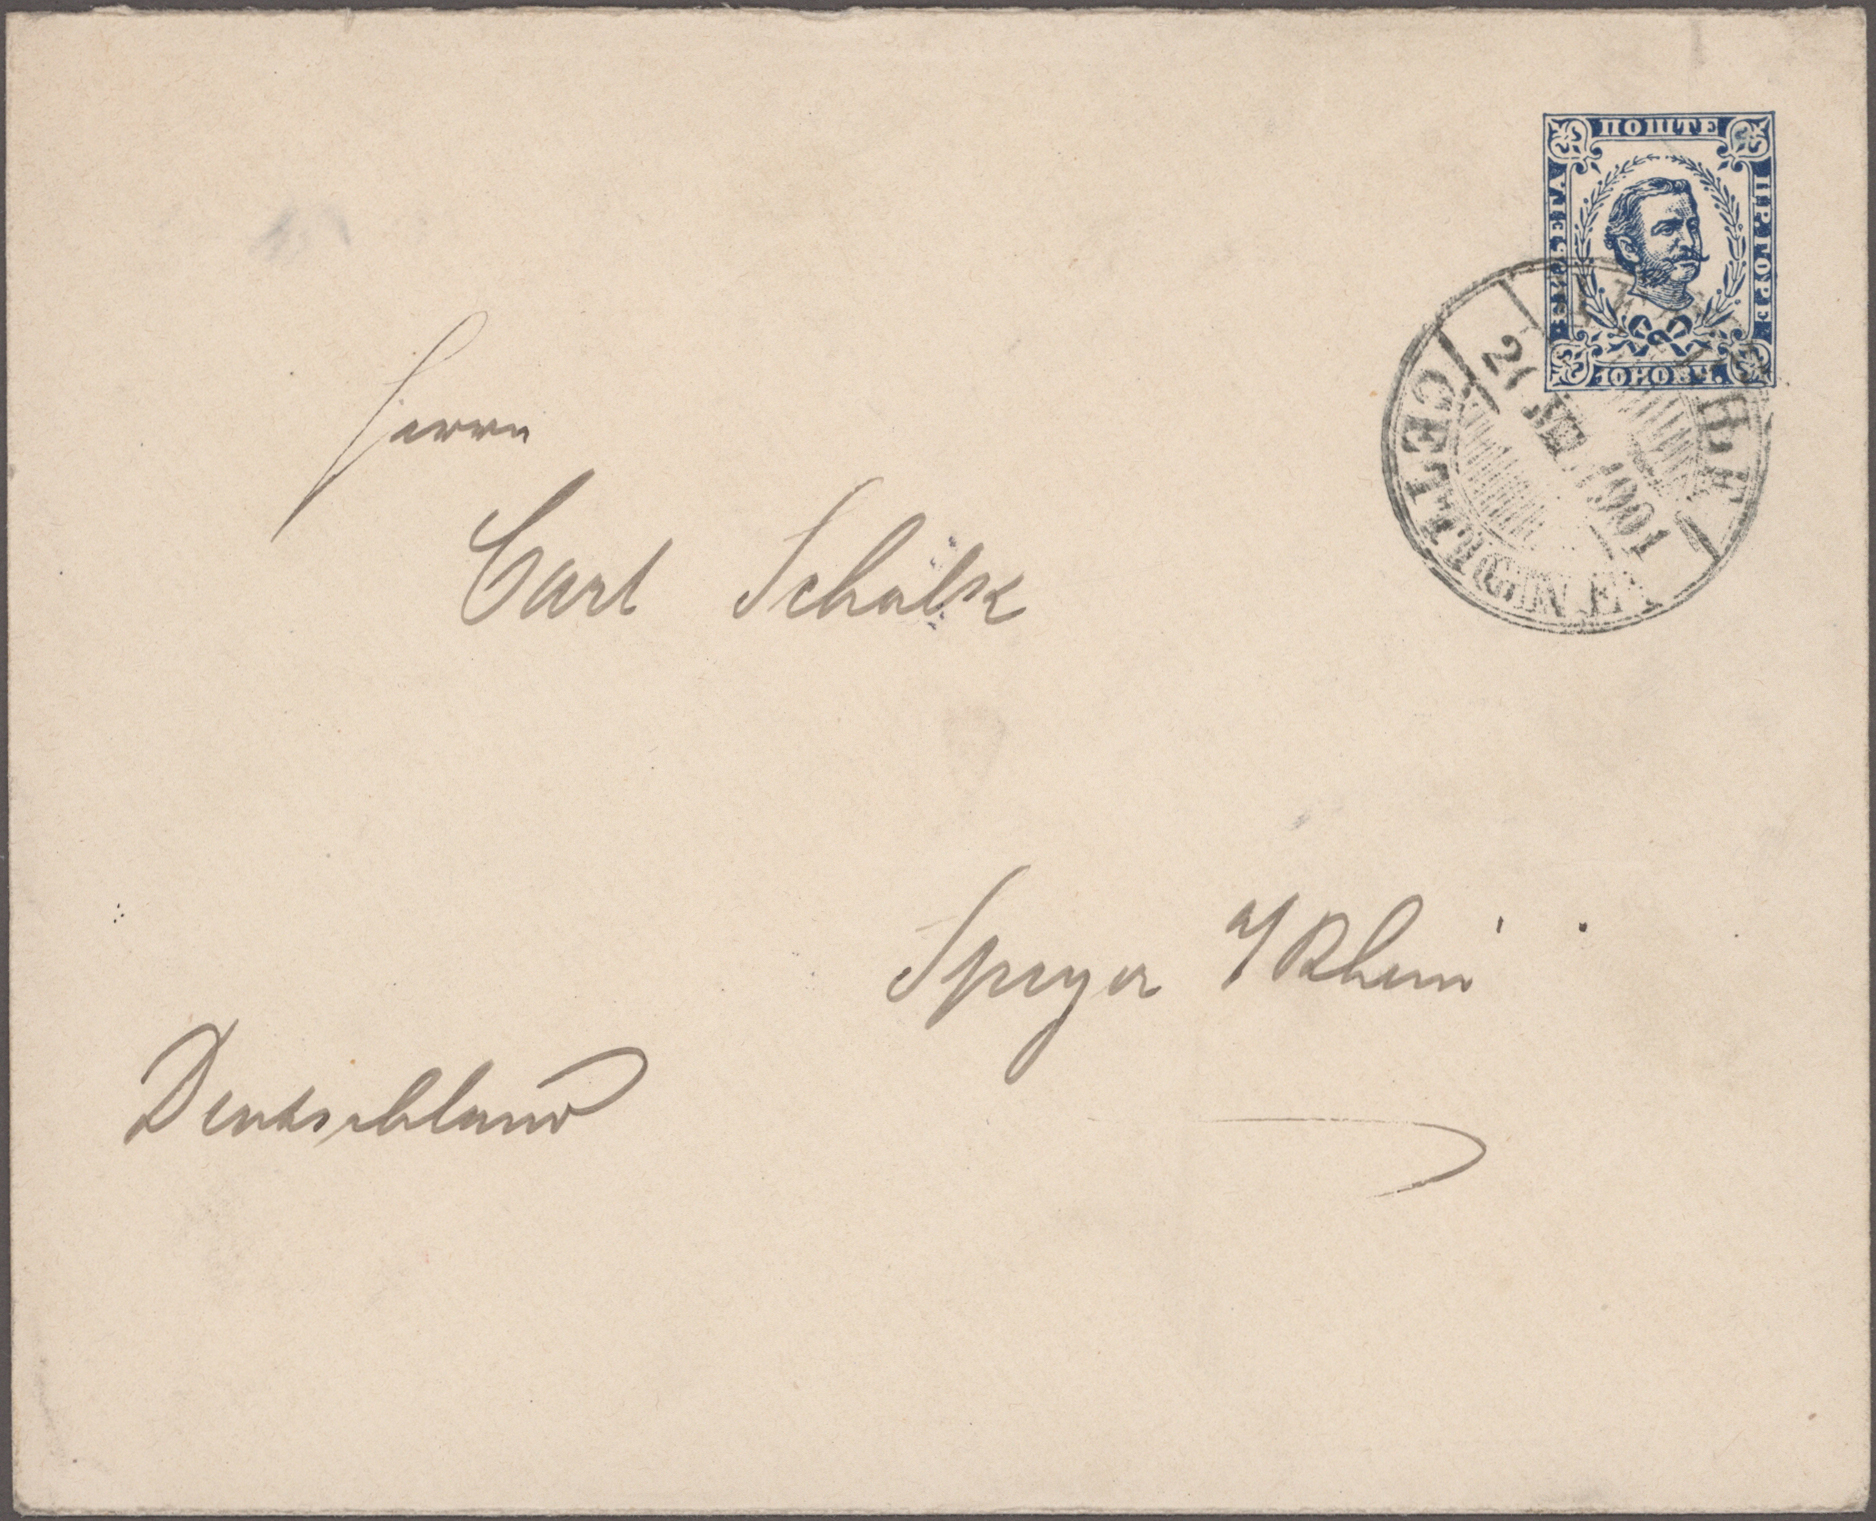 ПОШТЕ
ЦР. ГОРЕ
10 НОВЧ.
ЦЕТИЊЕ
1901
CETTIGNE
Herrn
Carl Schalk
Speyer a/Rhein
Deutschland